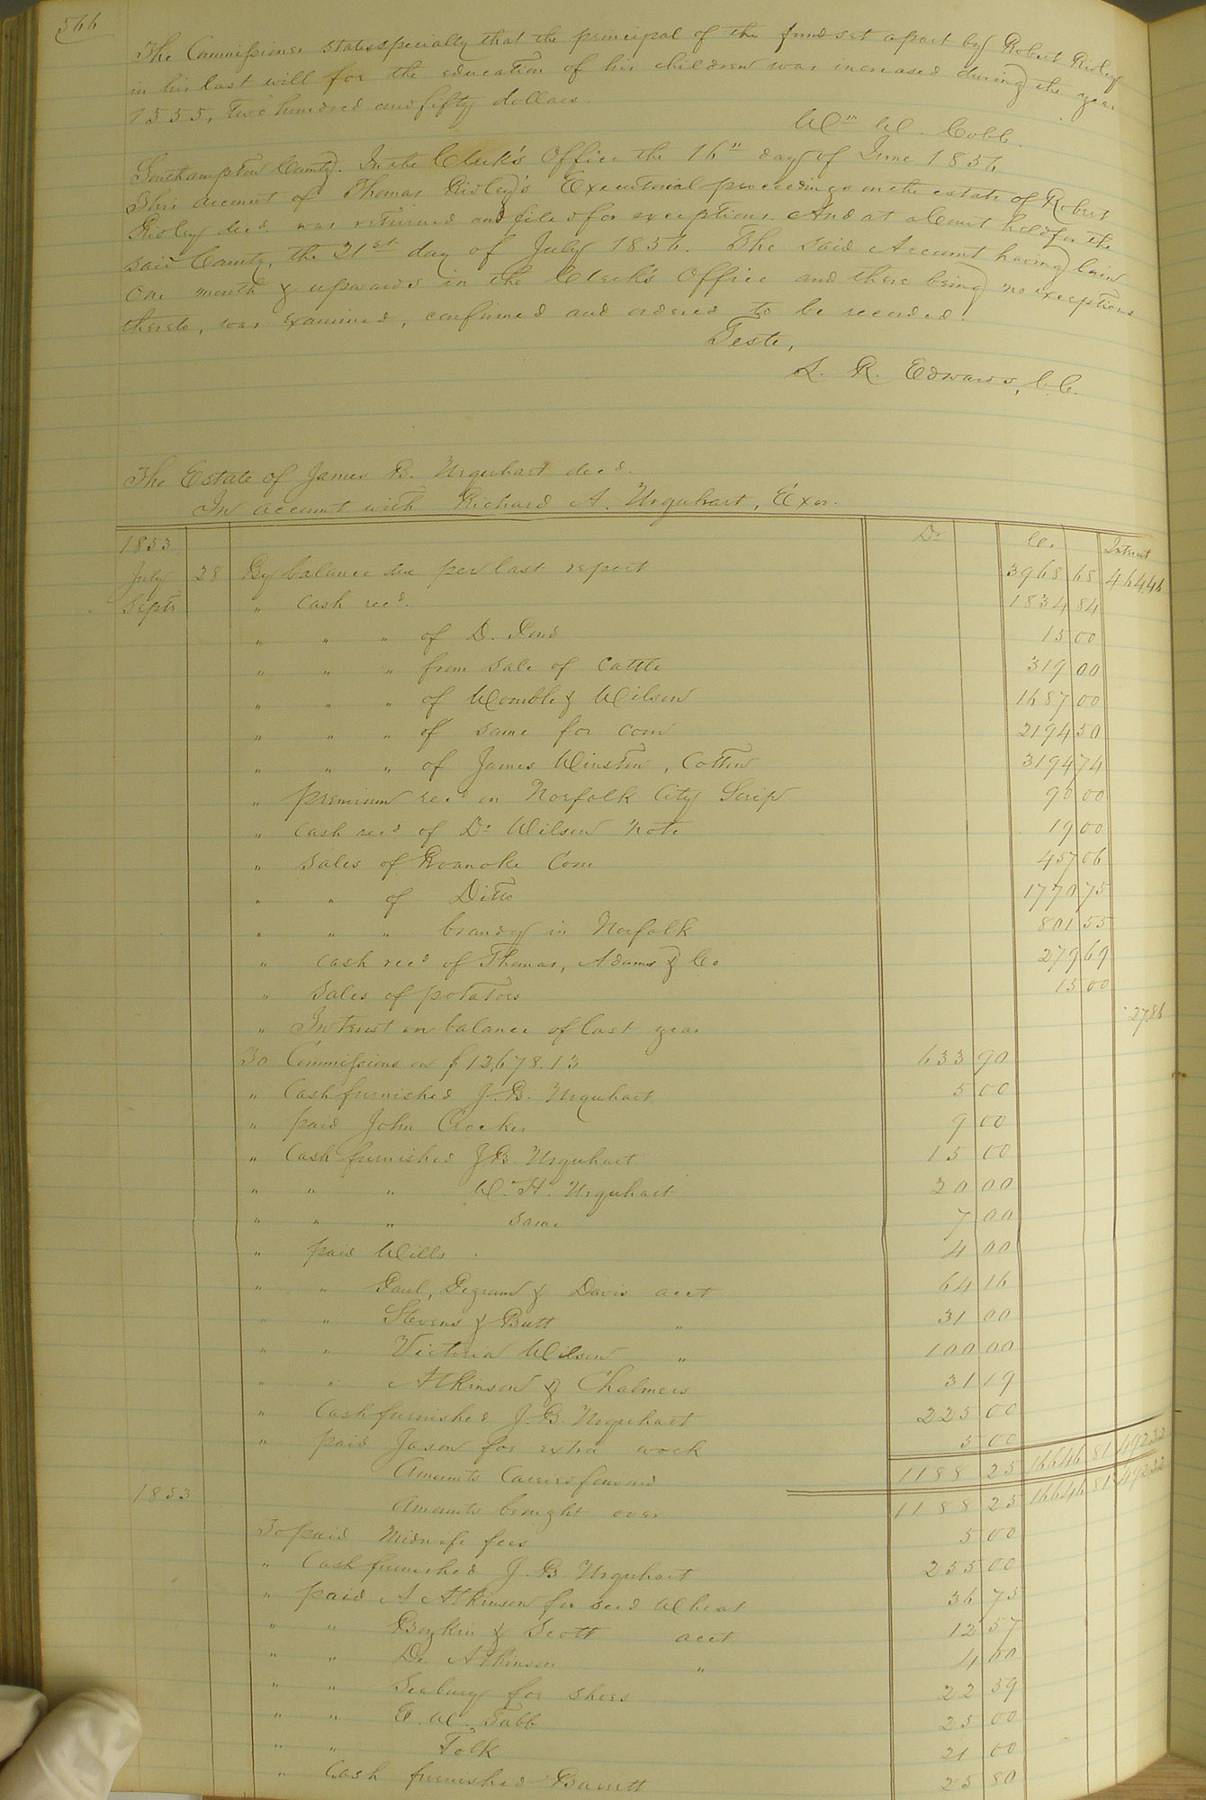 566
The Commissioner states specially that the principal of the fund set apart by Robert Ridley
in his last will for the education of his children was increased during the year
1855, two hundred and fifty dollars.
Wm W. Cobb.
Southampton County. In the Clerk's Office the 16th day of June 1856
This account of Thomas Ridley's Executorial proceedings on the estate of Robert
Ridley decd. was returned and filed for exceptions. And at a Court held for the
said County, the 21st day of July 1856. The said Account having lain
one month & upwards in the Clerk's Office and there being no exceptions
thereto, was examined, confirmed and ordered to be recorded.
Teste,
L. R. Edwards, C.C.
The Estate of James B. Urquhart decd.
In account with Richard A. Urquhart, Exor.
1853 Dr Cr. Interest
July 28 By balance due per last report 3968 68 464,46
Septr " cash recd. 1834 84
" " " of D. Pond 15 00
" " " from sale of cattle 319 00
" " " of Womble & Wilson 1687 00
" " " of same for corn 2194 50
" " " of James Winston, Cotton 3194 74
" premium recd on Norfolk City Scrip 90 00
" cash recd of Dr Wilson note 19 00
" sales of Roanoke Corn 457 06
" " of Ditto 1770 75
" " " brandy in Norfolk 801 55
" cash recd of Thomas, Adams & Co 279 69
" Sales of potatoes 15 00
" Interest on balance of last year 27,86
To Commissions on $12,678.13 633 90
" Cash furnished J. B. Urquhart 5 00
" paid John Crocker 9 00
" Cash furnished J B Urquhart 15 00
" " " W. H. Urquhart 20 00
" " " same 7 00
" paid Wills 4 00
" " Paul, Pegram & Davis acct 64 16
" " Stevens & Butt " 31 00
" " Victoria Wilson " 100 00
" " Atkinson & Chalmers 31 19
" Cash furnished J. B. Urquhart 225 00
" paid Jason for extra work 5 00
Amounts Carried forward 1188 25 16646 81 492 32
1853 Amounts brought over 1188 25 16646 81 492 32
To paid Midwife fees 5 00
" Cash furnished J. B. Urquhart 255 00
" paid A Atkinson for seed Wheat 36 75
" " Boykin & Scott acct 12 57
" " Dr Atkinson " 4 00
" " Seabury for shoes 22 39
" " E. W. Tabb 25 00
" " Folk 21 00
" Cash furnished Barrett 25 80